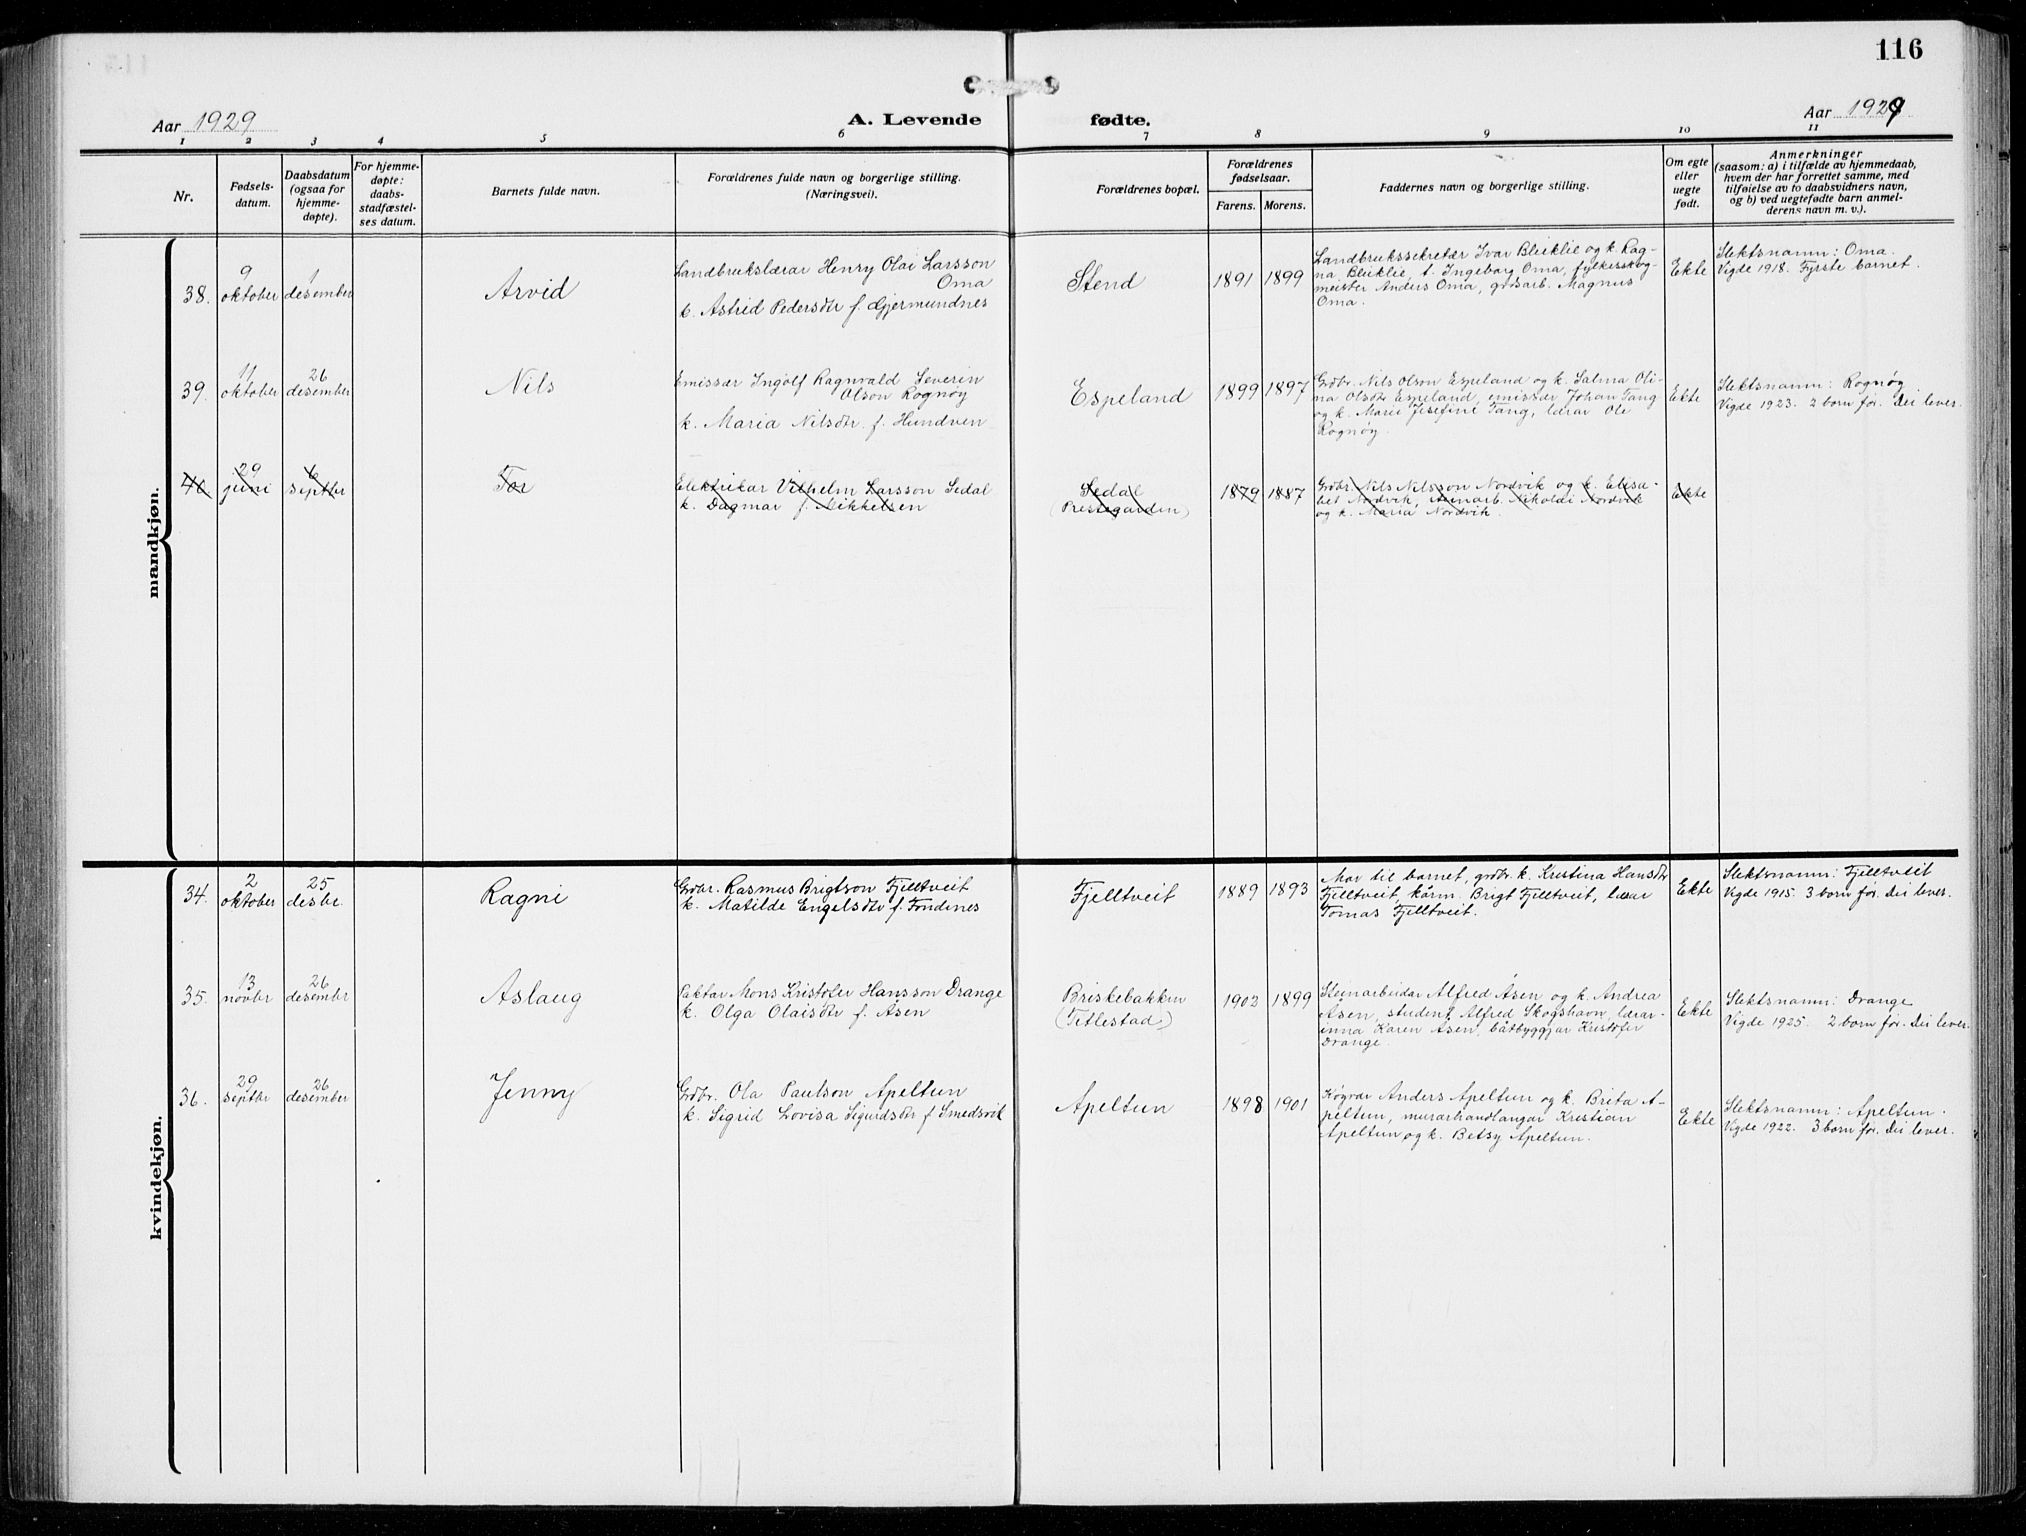 116
Aar 1929
A. Levende fødte.
Aar 1929
1 2 3 4 5 6 7 8 9 10 11
Nr.
Fødsels-
datum.
Daabsdatum
(ogsaa for
hjemme-
døpte).
For hjemme-
døpte:
daabs-
stadfæstel-
ses datum.
Barnets fulde navn.
Forældrenes fulde navn og borgerlige stilling.
(Næringsvei).
Forældrenes bopæl.
Forældrenes
fødselsaar.
Farens. Morens.
Faddernes navn og borgerlige stilling.
Om egte
eller
uegte
født.
Anmerkninger
(saasom: a) i tilfælde av hjemmedaab,
hvem der har forrettet samme, med
tilføielse av to daabsvidners navn,
og b) ved uegtefødte barn anmel-
derens navn m. v.).
mandkjøn.
38.
9
oktober
1
desember
Arvid
Landbrukslærar Henry Olai Larsson
Oma
k. Astrid Pedersdtr f. Gjermundnes
Stend
1891 1899
Landbrukssekretær Ivar Bleiklie og k. Rag-
na Bleiklie, t. Ingeborg Oma, fylkesskog-
meister Anders Oma, gardsarb. Magnus
Oma.
Ekte
Slektsnamn: Oma.
Vigde 1918. Fyrste barnet.
39.
11
oktober
26
desember
Nils
Emissær Ingolf Ragnvald Severin
Olson Rognøy
k. Maria Nilsdtr. f. Hundven
Espeland
1899 1897
Grdbr. Nils Olson Espeland og k. Salma Oli-
na Olsdtr Espeland, emissær Johan Tang
og k. Marie Josefine Tang, lærar Ole
Rognøy.
Ekte
Slektsnamn: Rognøy
Vigde 1923. 2 born før. Dei lever.
40
29
juni
6
septbr
Tor
Elektrikar Vilhelm Larsson Sedal
k. Dagmar f. Mikkelsen
Sedal
(Prestegarden)
1879 1887
Grdbr. Nils Nilsson Nordvik og k. Elisa-
bet Nordvik, steinarb. Nikolai Nordvik
og k. Maria Nordvik.
Ekte
kvindekjøn.
34.
2
oktober
25
desbr.
Ragni
Grdbr. Rasmus Brigtson Fjelltveit
k. Matilde Engelsdtr f. Fondenes
Fjelltveit
1889 1893
Mor til barnet, grdbr. k. Kristina Hansdtr
Fjelltveit, kårm. Brigt Fjelltveit, lærar
Tomas Fjelltveit.
Ekte
Slektsnamn: Fjelltveit
Vigde 1915. 3 born før. Dei lever.
35.
13
novbr
26
desembr
Aslaug
Paktar Mons Kristofer Hansson Drange
k. Olga Olaisdtr f. Åsen
Briskebakken
(Titlestad)
1902 1899
Steinarbeidar Alfred Åsen og k. Andrea
Åsen, student Alfred Skogshavn, lærar-
inna Karen Åsen, båtbyggjar Kristofer
Drange.
Ekte
Slektsnamn: Drange
Vigde 1925. 2 born før. Dei lever.
36.
29
septbr
26
desember
Jenny
Grdbr. Ola Paulson Apeltun
k. Sigrid Lovisa Sigurdsdtr f. Smedsvik
Apeltun
1898 1901
Anders Apeltun og k. Brita A-
peltun, murarhandlangar Kristian
Apeltun og k. Betsy Apeltun.
Ekte
Slektsnamn: Apeltun.
Vigde 1922. 3 born før. Dei lever.